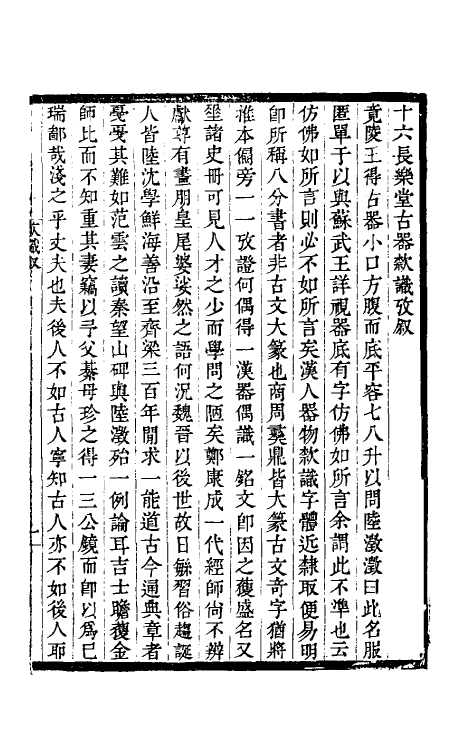 十六長樂堂古器款識攷叙
竟陵王得古器小口方腹而底平容七八升以問陸澂澂曰此名服
匿單于以與蘇武王詳視器底有字仿佛如所言余謂此不準也云
仿佛如所言則必不如所言矣漢人器物款識字體近隸取便易明
卽所稱八分書者非古文大篆也商周彛鼎皆大篆古文奇字猶將
推本偏旁一一攷證何偶得一漢器偶識一銘文卽因之獲盛名又
坐諸史冊可見人才之少而學問之陋矣鄭康成一代經師尙不辨
獻尊有畫朋皇尾婆娑然之語何況魏晉以後世故日緐習俗趨誕
人皆陸沈學鮮海善沿至齊梁三百年閒求一能道古今通典章者
憂憂其難如范雲之讀秦望山碑與陸澂殆一例論耳吉士瞻獲金
師比而不知重其妻竊以予父綦母珍之得一三公鏡而卽以爲已
瑞鄙哉淺之乎丈夫也夫後人不如古人寧知古人亦不如後人耶
款識叙
一